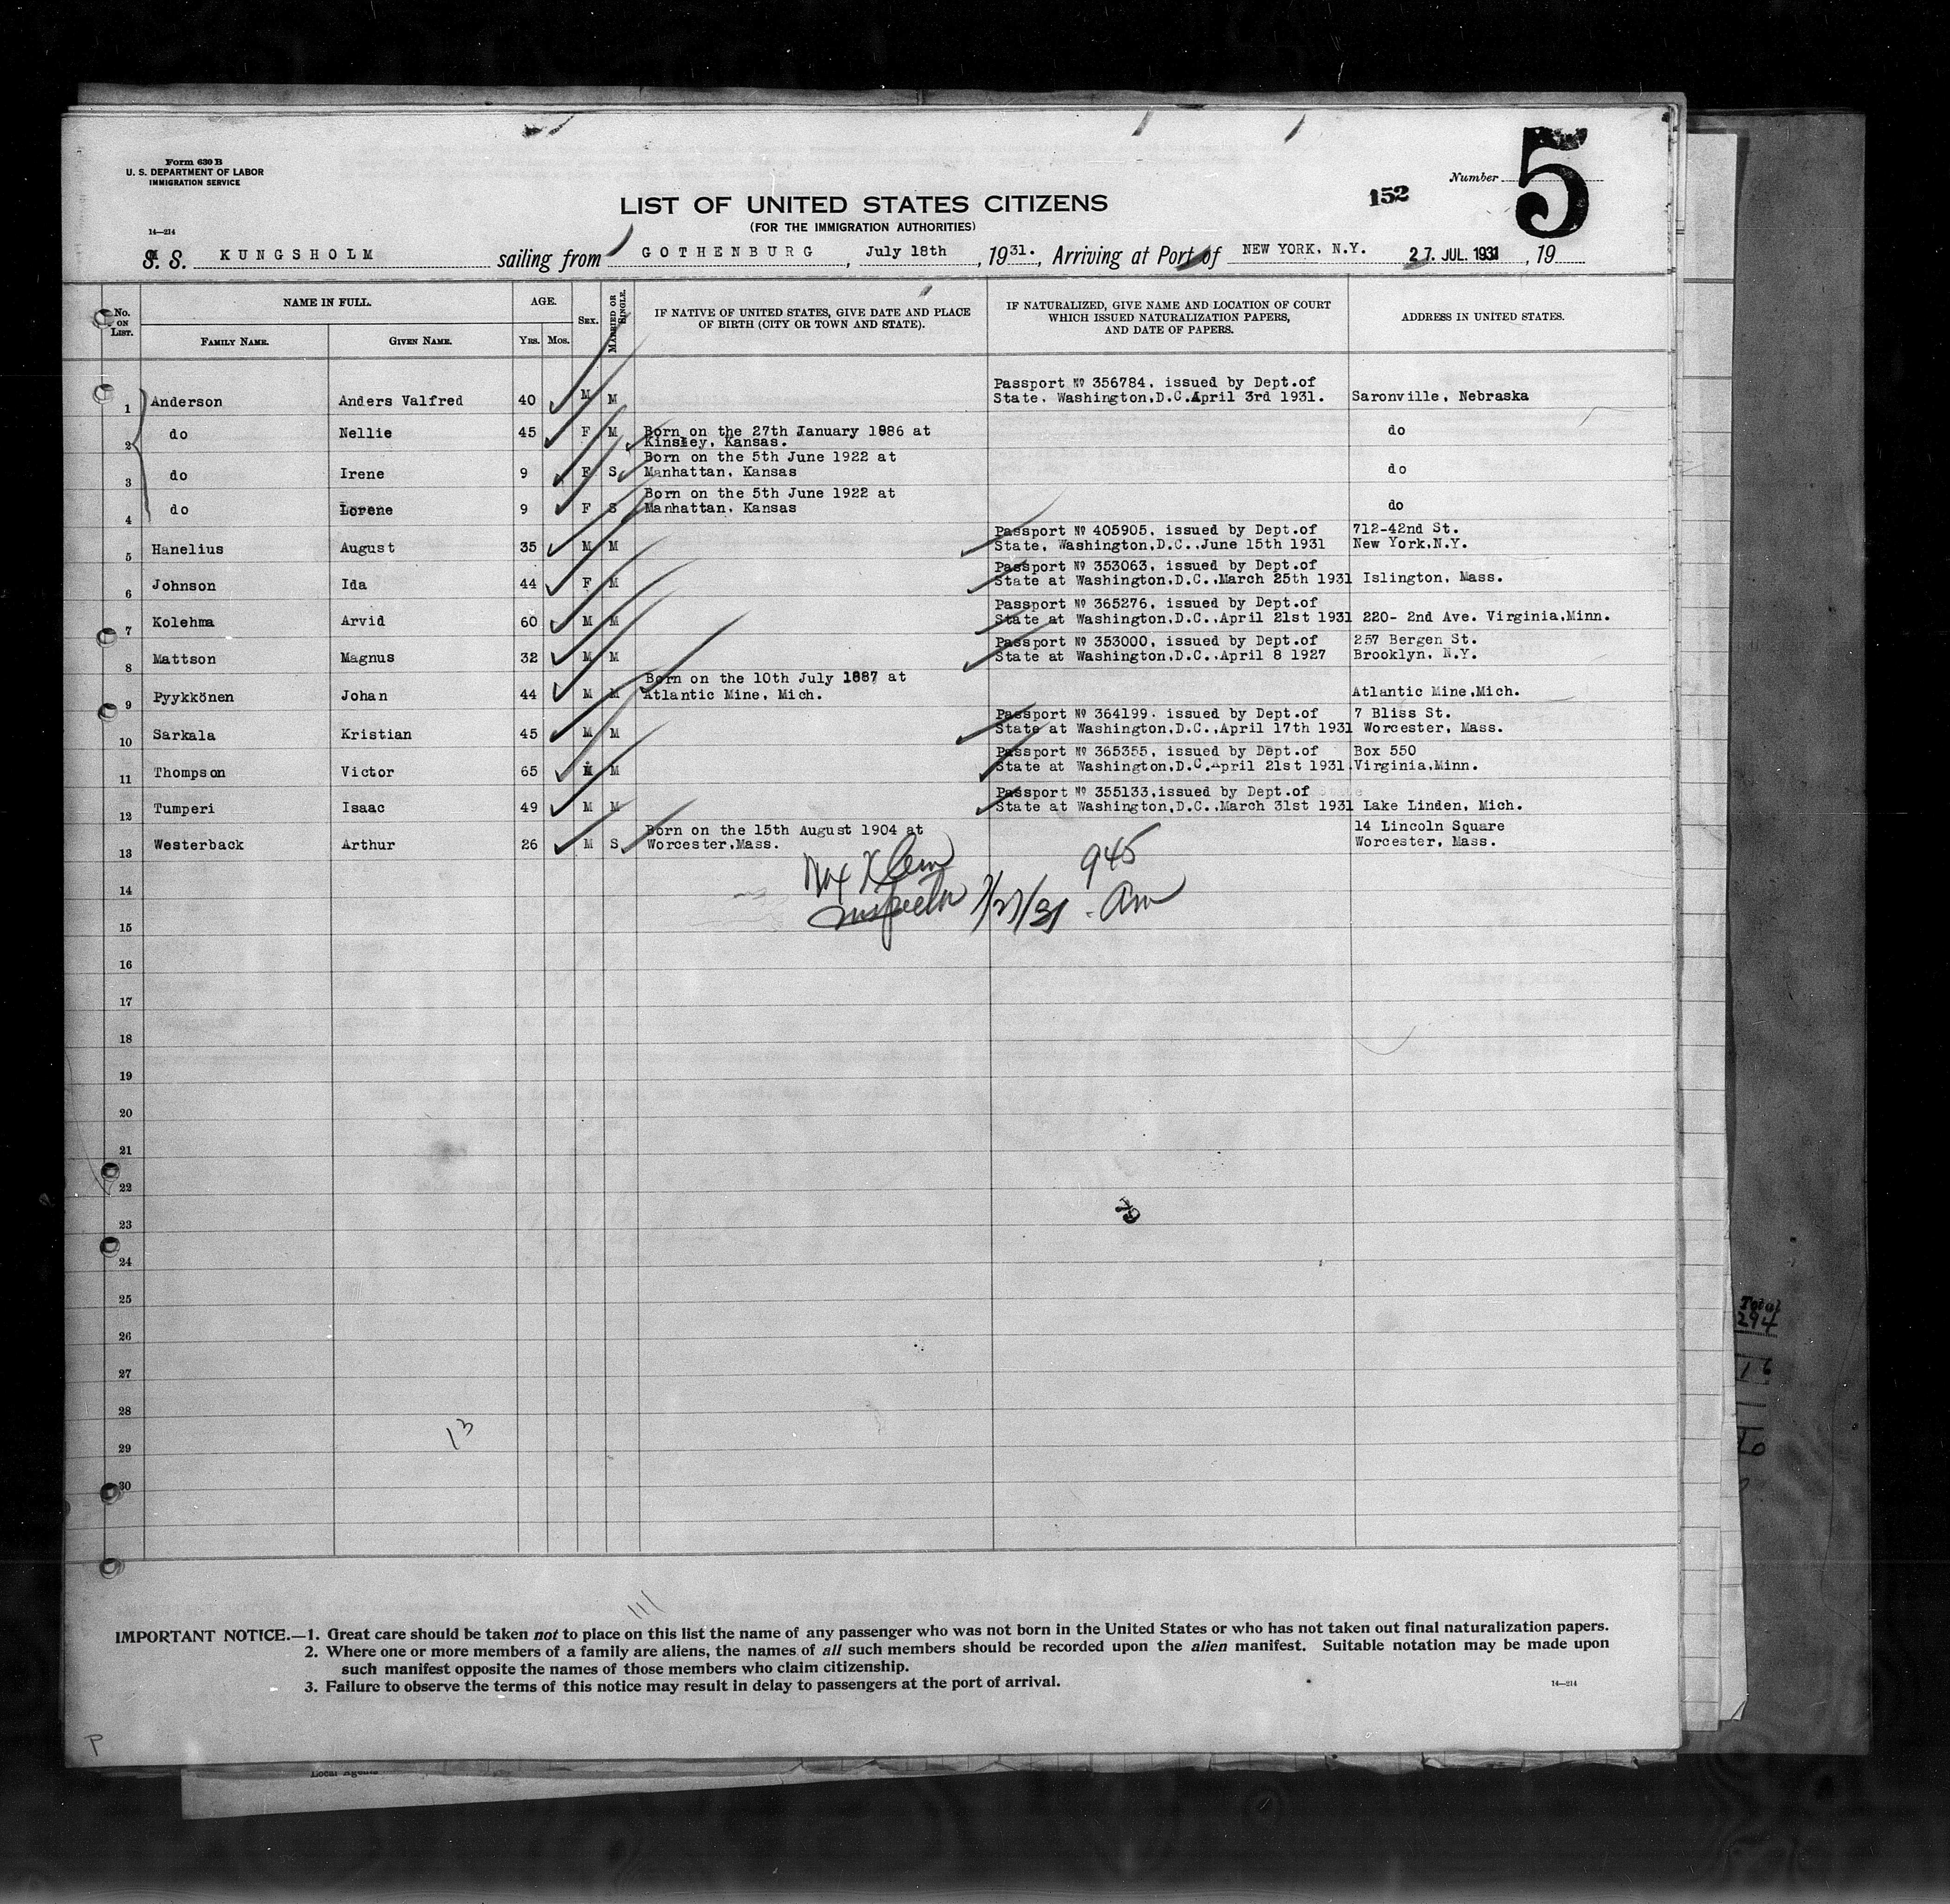 Form 630 B
U. S. DEPARTMENT OF LABOR
IMMIGRATION SERVICE
14—214
Number 5
152
LIST OF UNITED STATES CITIZENS
(FOR THE IMMIGRATION AUTHORITIES)
S. S. KUNGSHOLM sailing from GOTHENBURG, July 18th, 1931., Arriving at Port of NEW YORK, N.Y. 27. JUL. 1931, 19
No. ON LIST.
NAME IN FULL.
FAMILY NAME.
GIVEN NAME.
AGE.
YRS. MOS.
SEX.
MARRIED OR SINGLE.
IF NATIVE OF UNITED STATES, GIVE DATE AND PLACE
OF BIRTH (CITY OR TOWN AND STATE).
IF NATURALIZED, GIVE NAME AND LOCATION OF COURT
WHICH ISSUED NATURALIZATION PAPERS,
AND DATE OF PAPERS.
ADDRESS IN UNITED STATES.
Passport № 356784, issued by Dept.of
1 Anderson Anders Valfred 40 M M State. Washington,D.C.April 3rd 1931. Saronville, Nebraska
2 do Nellie 45 F M Born on the 27th January 1886 at do
Kinsley, Kansas.
Born on the 5th June 1922 at
3 do Irene 9 F S Manhattan, Kansas do
Born on the 5th June 1922 at
4 do Lorene 9 F S Manhattan, Kansas do
Passport № 405905, issued by Dept.of 712-42nd St.
5 Hanelius August 35 M M State, Washington,D.C.,June 15th 1931 New York,N.Y.
Passport № 353063, issued by Dept.of
6 Johnson Ida 44 F M State at Washington,D.C.,March 25th 1931 Islington, Mass.
Passport № 365276, issued by Dept.of
7 Kolehma Arvid 60 M M State at Washington,D.C.,April 21st 1931 220- 2nd Ave. Virginia,Minn.
Passport № 353000, issued by Dept.of 257 Bergen St.
8 Mattson Magnus 32 M M State at Washington,D.C.,April 8 1927 Brooklyn, N.Y.
Born on the 10th July 1887 at
9 Pyykkönen Johan 44 M M Atlantic Mine, Mich. Atlantic Mine,Mich.
Passport № 364199. issued by Dept.of 7 Bliss St.
10 Sarkala Kristian 45 M M State at Washington,D.C.,April 17th 1931 Worcester, Mass.
Passport № 365355, issued by Dept.of Box 550
11 Thompson Victor 65 M M State at Washington,D.C.April 21st 1931. Virginia,Minn.
Passport № 355133,issued by Dept.of
12 Tumperi Isaac 49 M M State at Washington,D.C.,March 31st 1931 Lake Linden, Mich.
Born on the 15th August 1904 at 14 Lincoln Square
13 Westerback Arthur 26 M S Worcester,Mass. Worcester, Mass.
Klein 945
14
Inspector 7/27/31 Am
15
16
17
18
19
20
21
22
23
24
25
26
27
28
29
30
13
Total
294
16
IMPORTANT NOTICE.—1. Great care should be taken not to place on this list the name of any passenger who was not born in the United States or who has not taken out final naturalization papers.
2. Where one or more members of a family are aliens, the names of all such members should be recorded upon the alien manifest. Suitable notation may be made upon
such manifest opposite the names of those members who claim citizenship.
3. Failure to observe the terms of this notice may result in delay to passengers at the port of arrival.
14—214
P
Local Agents